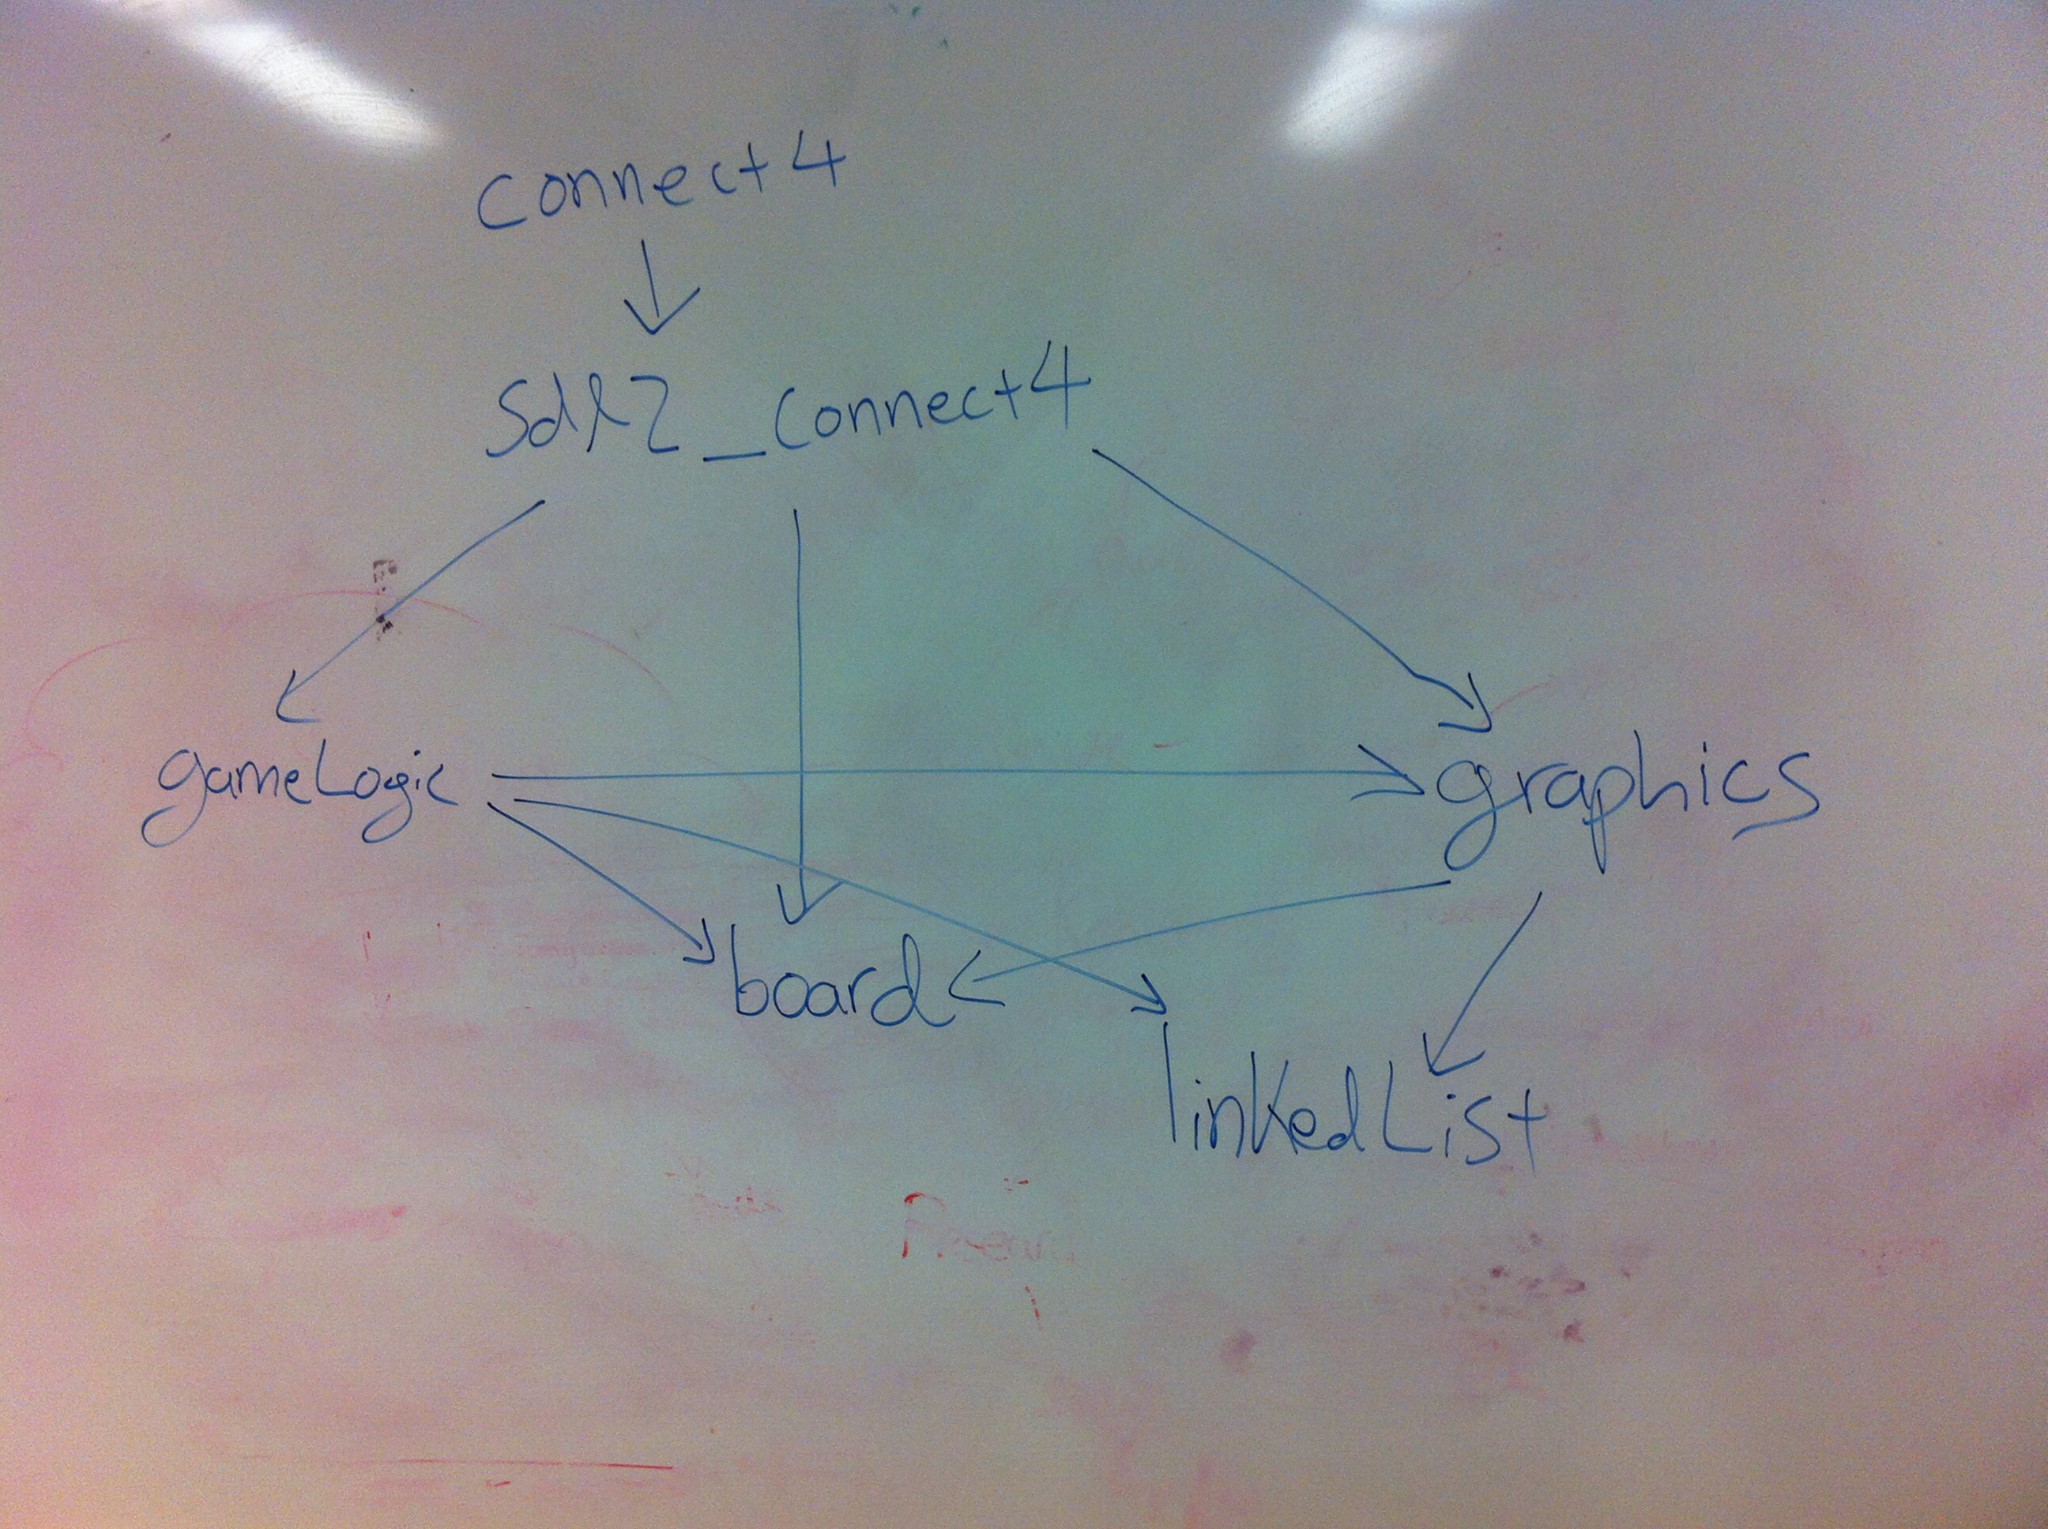 connect4
sdl2_connect4
gameLogic
graphics
board
linkedList